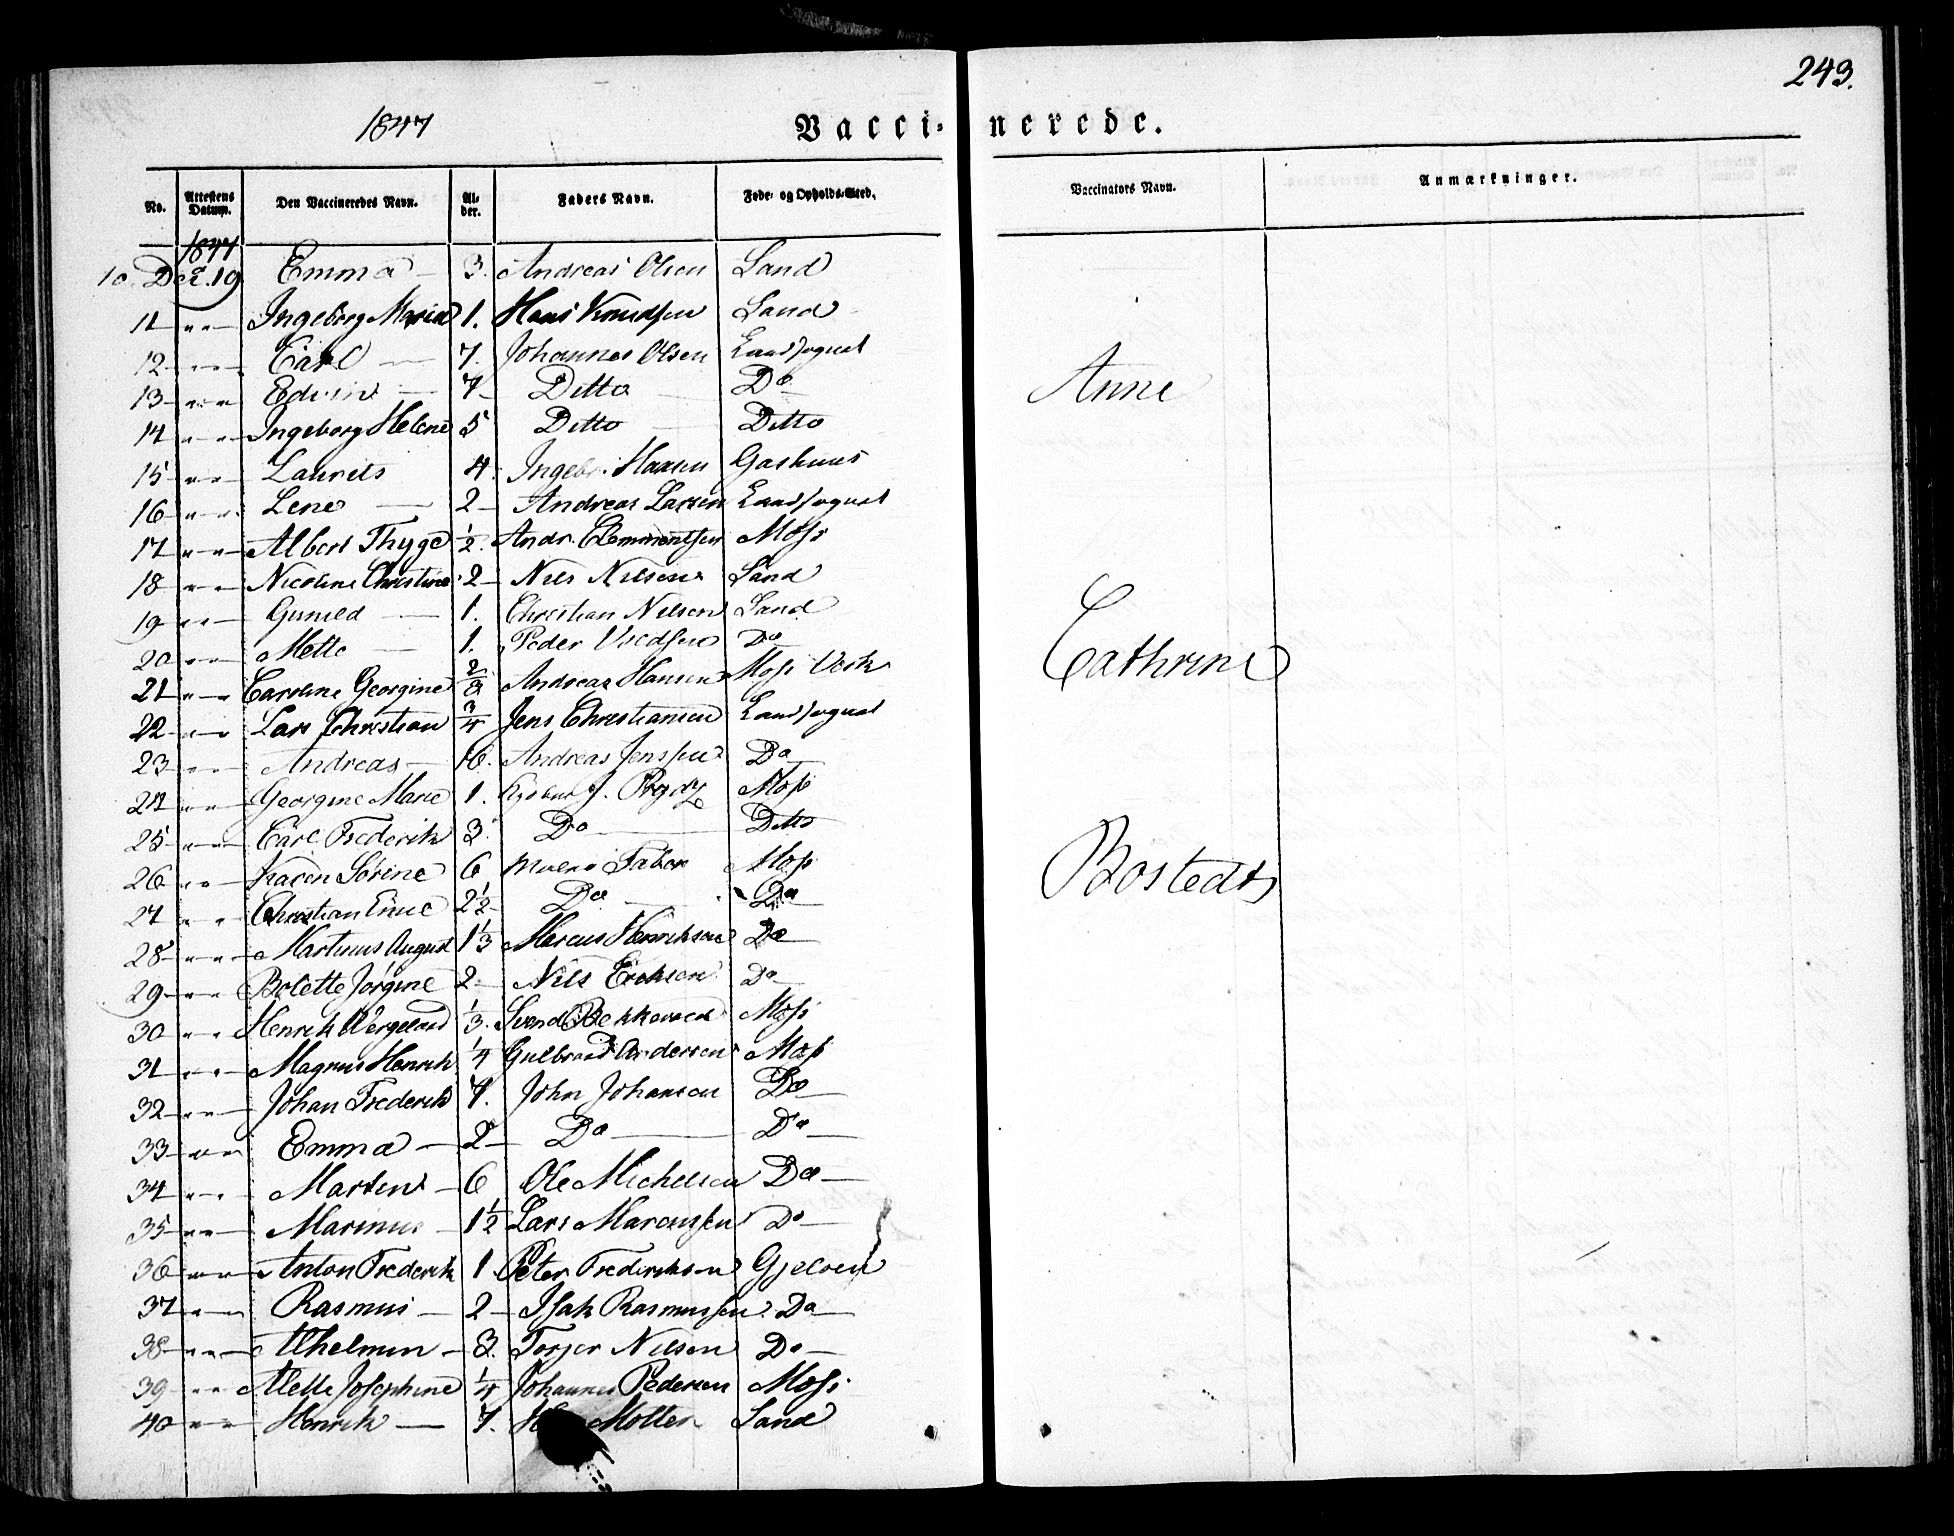 243.
1847
Vacci- nerede.
No. Attestens Datum. Den Vaccineredes Navn. Al- der. Faders Navn. Føde- og Opholds-Sted. Vaccinators Navn. Anmærkninger.
1847
10 Dec. 19 Emma 3. Andreas Olsen Sand
11 " " Ingeborg Maria 1. Hans Knudsen Sand
12 " " Carl 7. Johannes Olsen Landsognet
13 " " Edvin 7 Ditto Do
14 " " Ingeborg Helene 5 Ditto Ditto
15 " " Laurits 4. Hansen Gashuus
16 " " Lene 2 Andreas Larsen Landsognet
17 " " Albert Thyge 1/2. Andr. Clemmentsen Moss
18 " " Nicoline Christine 2 Nils Nilsen Sand
19 " " Gunild 1. Christian Nilsen Sand
20 " " Mette 1. Peder Do
21 " " Caroline Georgine 2/3 Andreas Hansen Moss Verk
22 " " Lars Christian 3/4 Jens Christiansen Landsognet
23 " " Andreas Andreas Jenssen Do
24 " " Georgine Marie 1. Moss
25 " " Carl Frederik 3. Do Ditto
26 " " Karen Sørine 6 Moss
27 " " Christian 2 1/2 Do Do
28 " " Martinus August 1 1/3 Marcus Henriksen Do
29 " " Bolette Jørgine 2 Nils Eriksen Do
30 " " Henrik Wergeland 1/3. Svend Moss
31 " " Magnus Henrik 1/4 Gulbrand Andersen Moss
32 " " Johan Frederik 7. John Johansen Do
33 " " Emma 2 Do Do
34 " " Marten 6 Ole Michelsen Do
35 " " Marinus 1 1/2 Lars Marcussen Do
36 " " Anton Frederik 1 Peter Frederiksen Gjeloen
37 " " Rasmus 2 Isak Rasmussen Do
38 " " 3. Torger Nilsen Do
39 " " Mette Josephine 1/4 Johannes Pedersen Moss
40 " " Henrik 7. Sand
Anne
Cathrine
Bostedt